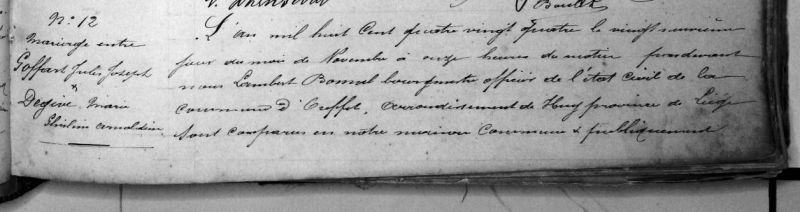 N° 12
Mariage entre
Goffart Jules Joseph
&
Degive, Marie
Ghisline
L'an mil huit Cent quatre vingt quatre le vingt neuvième
jour du mois de Novembre à onze heures du matin pardevant
nous Lambert Bomal bourgmestre officier de l'état civil de la
commune d'Oeffet, arrondissement de Huy province de Liége
sont comparus en notre maison Commune & publiquement